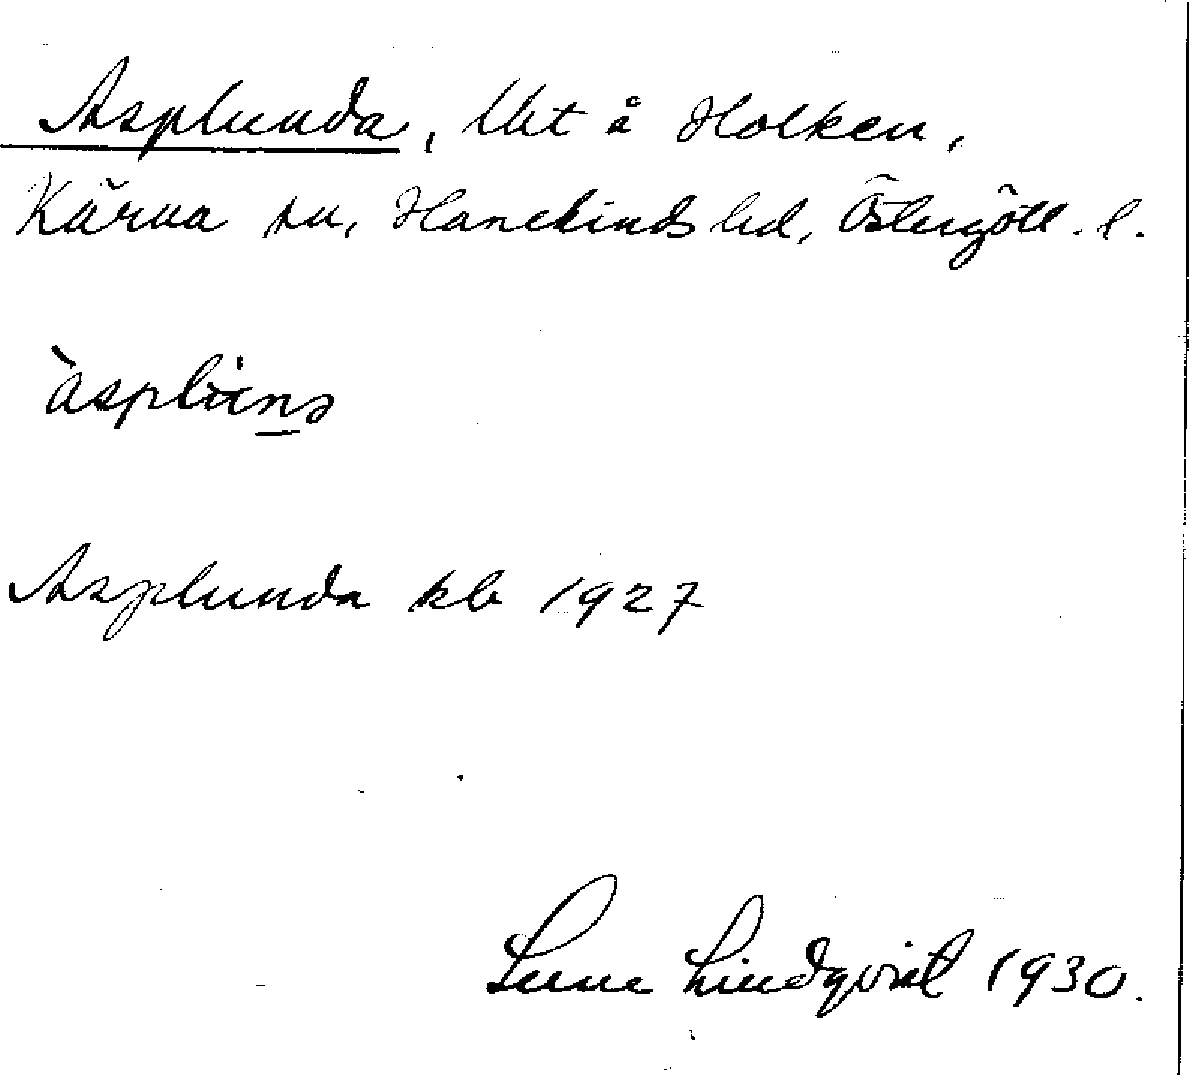 Asplunda, Lht å Holken,
Kärna sn, Hanekinds hd, Östergötl. l.
àsplu̇nə
Asplunda kb 1927
Sune Lindqvist 1930.